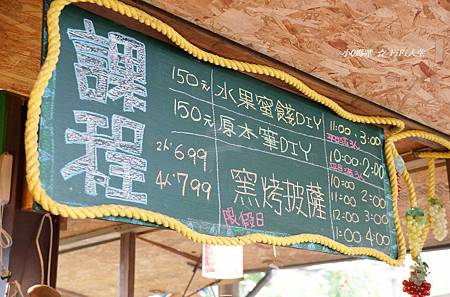 小Q媽咪 ☆ FiFi人生
課程
150元 水果蜜餞DIY 11:00 3:00
150元 原木筆DIY 10:00 2:00
2人699 窯烤披薩 10:00 2:00
4人799 11:00
12:00 3:00
限假日 11:00 4:00